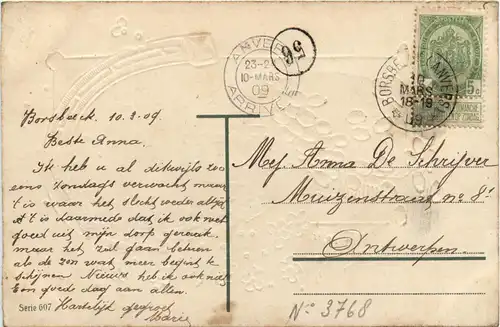 ANVERS
23-24
10-MARS
09
ARRIVÉE
56
BORSBEEK (ANVERS)
10
MARS
18-19
09
5c
Borsbeeck 10.3.09.
Beste Anna.
Ik heb u al dikwijls zoo
eens zondags verwacht maar
't is waar het slecht weder altijd
&'t is daarmede dat ik ook niet
goed uit mijn dorp geraak
maar het zal gaan beteren
als de zon wat meer begint te
schijnen Nieuws heb ik ook niet
Een goede dag aan allen.
Hartelijk gegroet
Marie
Serie 607
Mej Anna De Schrijver
Muizenstraat n° 8
Antwerpen.
N° 3768